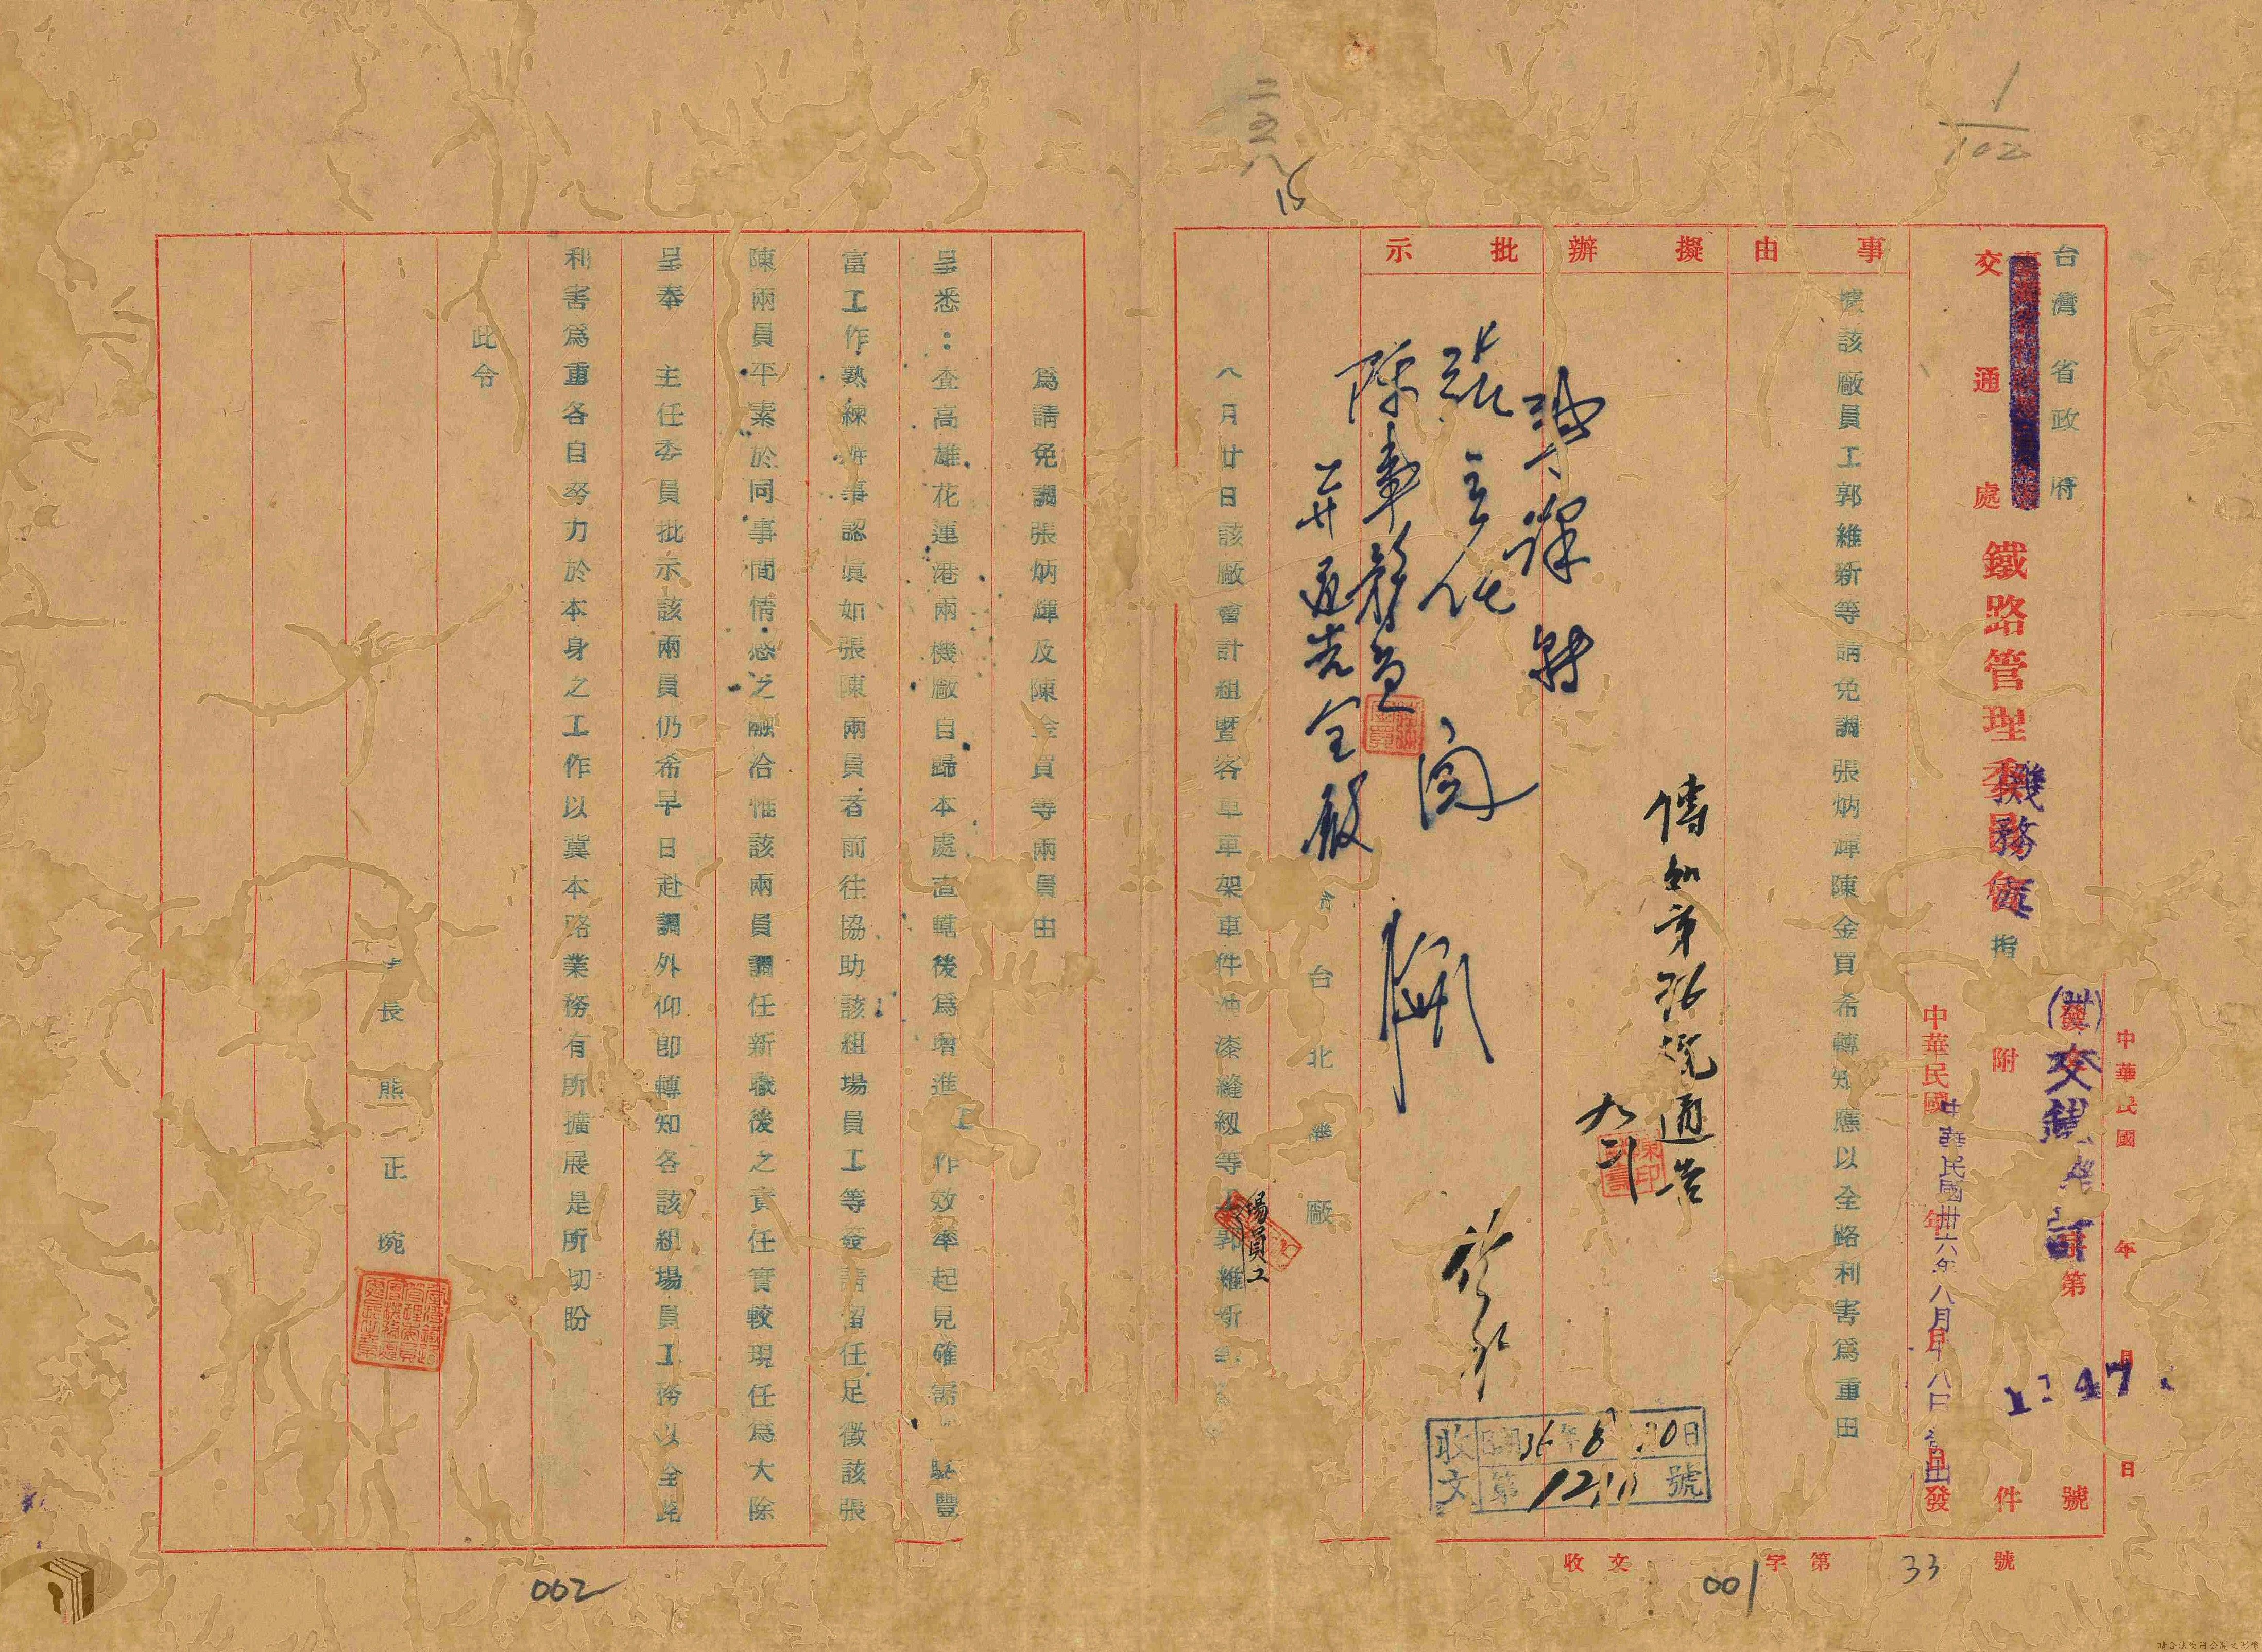 1/102
二五八
15
台灣省政府
交通處
鐵路管理委員會
機務處
指
中華民國 年 月 日
交鐵
字第 號
附 件
中華民國卅六年八月廿八日
發出
事由
據該廠員工郭維新等請免調張炳輝陳金買希轉知應以全路利害為重由
擬辦
傳知並張貼通告
批示
張主任
陳事務員
閱
收文
36年8月30日
第 號
令台北機廠
八月廿日該廠會計組暨客車車架車件油漆縫紉等
員工
郭維新
為請免調張炳輝及陳金買等兩員由
呈悉：查高雄花蓮港兩機廠自歸本處直轄後為增進工作效率起見確需 豐
富工作熟練辦事認真如張陳兩員者前往協助該組場員工等簽請留任足徵該張
陳兩員平素於同事間情感之融洽惟該兩員調任新職後之責任實較現任為大除
呈奉 主任委員批示該兩員仍希早日赴調外仰即轉知各該組場員工務以全路
利害為重各自努力於本身之工作以冀本路業務有所擴展是所切盼
此令
處長熊正琬
收文 字第33號
001
002